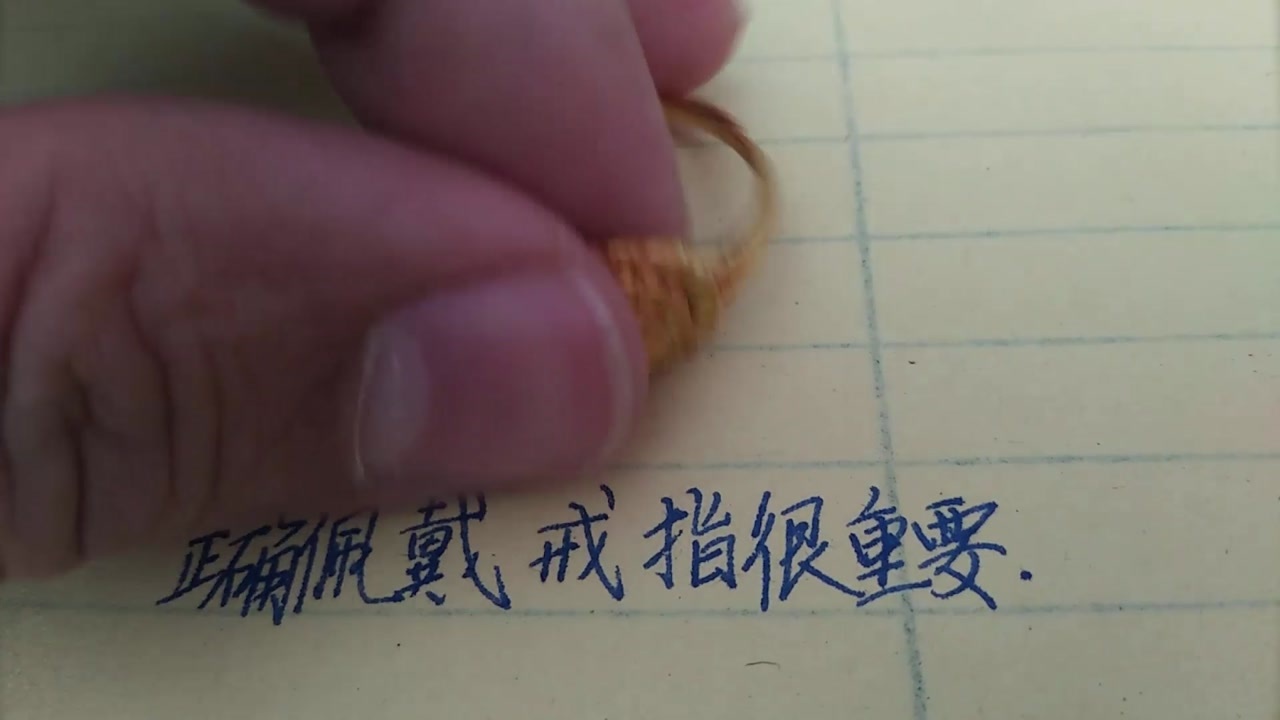 正确佩戴戒指很重要.